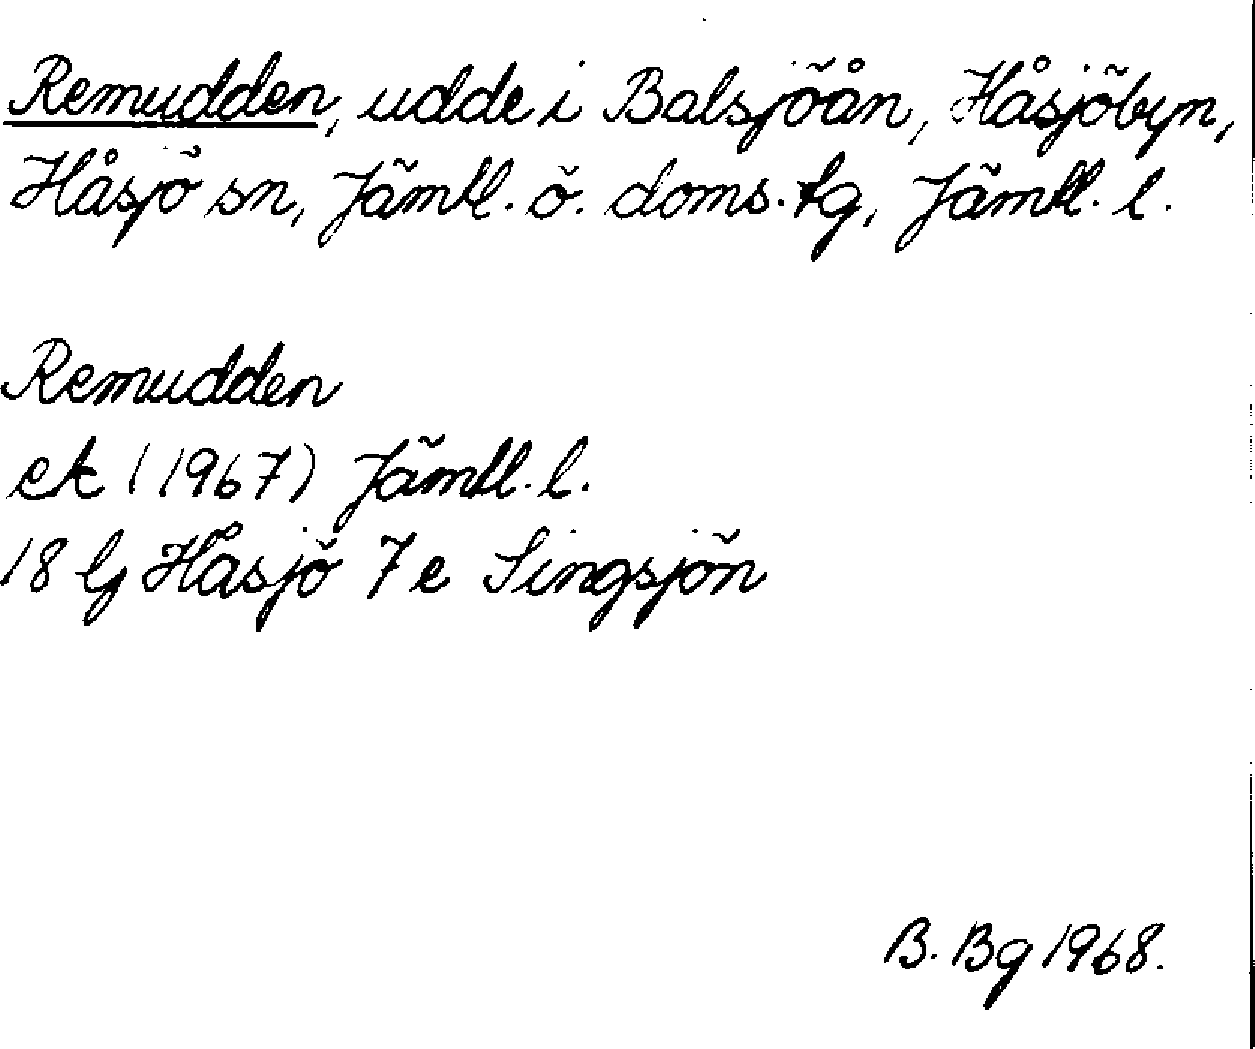 Remudden, udde i Balsjöån, Håsjöbyn,
Håsjö sn, Jämtl. ö. doms. tg, Jämtl. l.
Remudden
ek (1967) Jämtl. l.
18 G Håsjö 7 e Singsjön
B. Bg 1968.